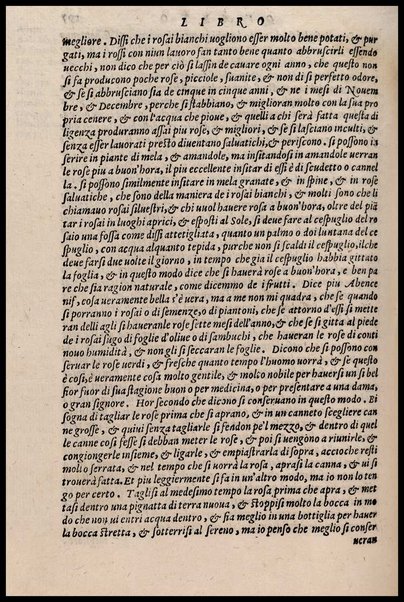 LIBRO
megliore. Dissi che i rosai bianchi uogliono esser molto bene potati, & pur
gati, ma i rossi con niun lauoro fan tanto bene quanto abbruscirli essendo
uecchi, non dico che per ciò si lassin de cauare ogni anno, che questo non
si fa producono poche rose, picciole, suanite, & non di sì perfetto odore,
& se si abbrusciano sia de cinque in cinque anni, & ne i mesi di Nouem
bre, & Decembre, perche si stabbiano, & miglioran molto con la sua pro
pria cenere, & con l'acqua che pioue, & quelli a chi serà fatta questa di
ligenza produranno assai piu rose, & migliori, & se si lasciano inculti, &
senza esser lauorati presto diuentano saluatichi, & periscono. si possono in
serire in piante di mela, & amandole, ma insitandosi in amandole uerran
le rose piu a buon'hora, il piu eccellente insitar di essi è di scudetto o cannel
la. si possono similmente insitare in mela granate, & in spine, & in rose
saluatiche, che sono della maniera de i rosai bianchi, & molti sono che li
chiamano rosai siluestri, & chi uuol hauere rosa a buon'hora, oltre del piã
tar i rosai in luoghi aprici, & esposti al Sole, si deue fare al cespuglio del ro
saio una fossa come dissi attetigliata, quanto un palmo o doi luntana del ce
spuglio, con acqua alquanto tepida, purche non si scaldi il cespuglio, ilche
deue farsi due uolte il giorno, in tempo che gia il cespuglio habbia gittato
la foglia, & in questo modo dice che si hauerà rose a buon'hora, e ben pa
re che sia ragion naturale, come dicemmo de i frutti. Dice piu Abence
nif, cosa ueramente bella s'è uera, ma a me non mi quadra, che se quando
si porranno i rosai o di semenze, o di piantoni, che se attorno d'essi si mette
ran delli agli si haueranle rose sette mesi dell'anno, & che se si gitta al piede
de i rosai sugo di foglie d'oliue o di sambuchi, che haueran le rose di conti
nouo humidità, & non gli si seccaran le foglie. Dicono che si possono con
seruar le rose uerdi, & fresche quanto tempo l'huomo uorrà, & se questo
è così, è ueramente cosa molto gentile, & molto nobile per hauersi un sì bel
fior fuor di sua stagione buon o per medicina, o per presentare a una dama,
o gran signore. Hor secondo che dicono si conseruano in questo modo. Bi
sogna di tagliar le rose prima che si aprano, & in un canneto scegliere can
ne grosse, & quiui senza tagliarle si fendon pe'l mezzo, & dentro di quel
le canne così fesse si debban meter le rose, & poi si uengono a riunirle, &
congiongerle insieme, & ligarle, & empiastrarla di sopra, accioche resti
molto serrata, & nel tempo che si uorrà la rosa, aprasi la canna, & ui si
trouerà fatta. Et piu leggiermente si fa in un'altro modo, ma io non lo ten
go per certo. Taglisi al medesimo tempo la rosa prima che apra, & met
tasi dentro una pignatta di terra nuoua, & stoppisi molto la bocca in mo
do che non ui entri acqua dentro, & sia meglio in una bottiglia per hauer
la bocca stretta, & sotterrisi al sereno, ma io penso che meglio si conser
ueran